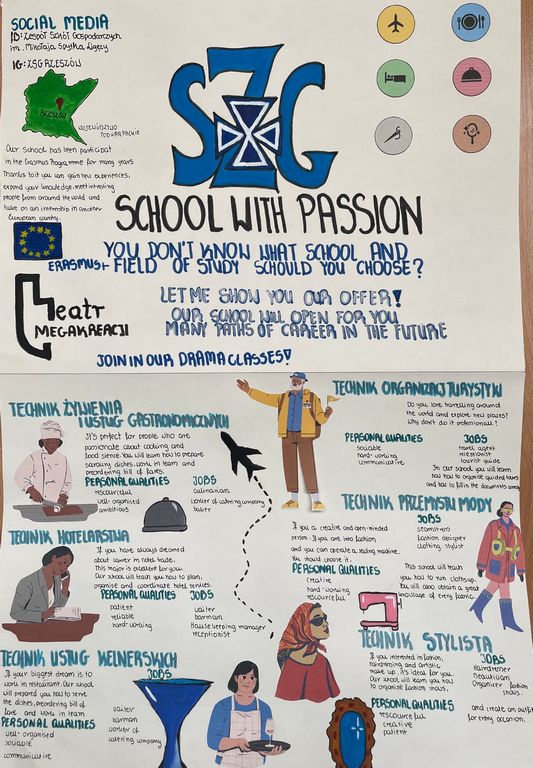 SOCIAL MEDIA
FB: Zespół Szkół Gospodarczych
im. Mikołaja Spytka Ligęzy
IG: ZSGRZESZÓW
RZESZÓW
WOJEWÓDZTWO
PODKARPACKIE
Our School has been participat
in the Erasmus Programme for many years
Thanks to it you can gain new experiences,
expand your knowledge, meet interesting
people from around the world and
take on an internship in another
European country.
ERASMUS+
SZG
SCHOOL WITH PASSION
YOU DON'T KNOW WHAT SCHOOL AND
FIELD OF STUDY SCHOULD YOU CHOOSE?
LET ME SHOW YOU OUR OFFER!
OUR SCHOOL WILL OPEN FOR YOU
MANY PATHS OF CAREER IN THE FUTURE
teatr
MEGAKREACJI
JOIN IN OUR DRAMA CLASSES!
TECHNIK ŻYWIENIA
I USŁUG GASTRONOMICZNYCH
It's perfect for people who are
passionate about cooking and
food sience. You will learn how to prepare
savouring dishes, work in team and
preordering bill of fares.
PERSONAL QUALITIES
resourceful
well-organised
ambitious
JOBS
culinarian
worker of catering company
baker
TECHNIK HOTELARSTWA
If you have always dreamed
about career in hotel trade.
This major is excellent for you.
Our school will teach you how to plan,
organise and coordinate hotel services.
PERSONAL QUALITIES
patient
reliable
hard-working
JOBS
waiter
barman
Housekeeping manager
receptionist
TECHNIK USŁUG KELNERSKICH
If your biggest dream is to
work in restaurant. Our school
will prepared you how to serve
the dishes, preordering bill of
fare and work in team
PERSONAL QUALITIES
well-organised
sociable
communicative
JOBS
waiter
barman
worker of
catering company
TECHNIK ORGANIZACJI TURYSTYKI
Do you love travelling around
the world and explore new places?
Why don't do it professionals?
PERSONAL QUALITIES
sociable
hard-working
communicative
JOBS
travel agent
receptionist
tourist guide
In our school you will learn
how to organise guided tours
and how to fill in the documents
TECHNIK PRZEMYSŁU MODY
If you a creative and open-minded
person. If you are into fashion
and you can operate a sewing machine.
You should choose it.
JOBS
seamstress
fashion designer
clothing stylist
PERSONAL QUALITIES
creative
hard-working
resourceful
This school will teach
you how to run clothes up.
You will also obtain a great
knowledge of every fabric.
TECHNIK STYLISTA
If you interested in fashion,
hairdressing and artistic
make up, it's ideal for you.
Our school will learn you how
to organise fashion shows,
JOBS
Hairdresser
Beautician
Organizer fashion
shows
and create an outfit
for every occasion.
PERSONAL QUALITIES
resourceful
creative
patient